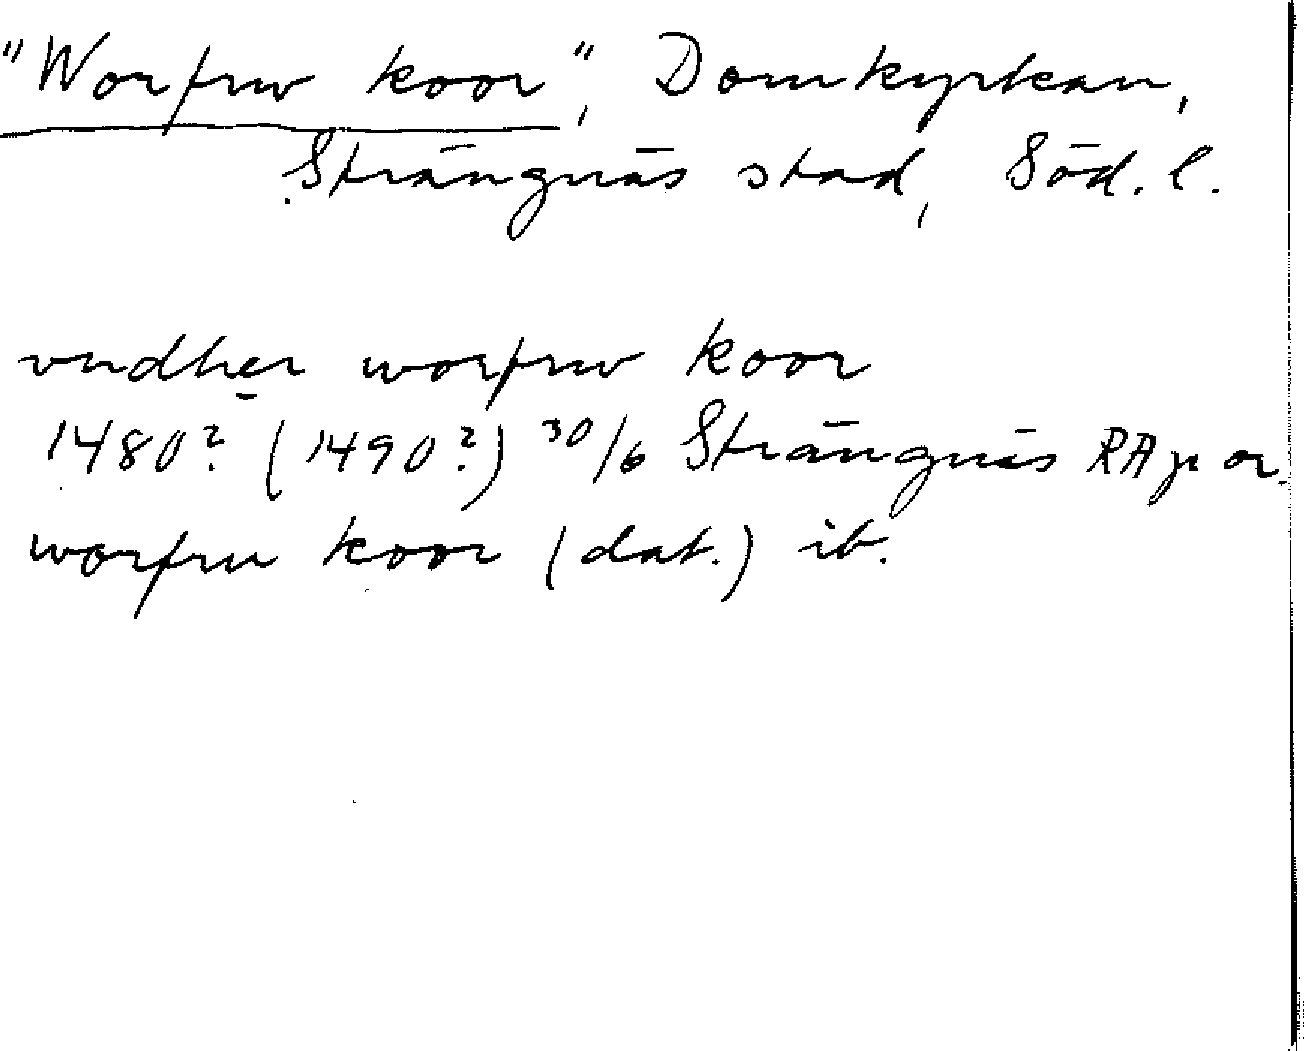 "Worfrw koor", Domkyrkan,
Strängnäs stad, Söd. l.
vndher worfrw koor
1480? (1490?) 30/6 Strängnäs RAp or.
worfru koor (dat.) ib.